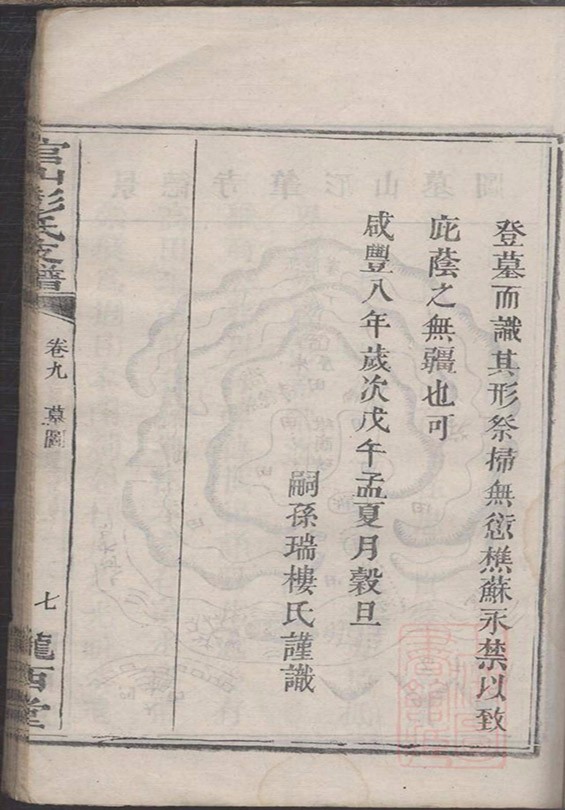 登墓而識其形祭掃無愆樵蘇永禁以致
庇蔭之無疆也可
咸豐八年歲次戊午孟夏月穀旦
嗣孫瑞樓氏謹識
官山彭氏支譜
卷九
墓圖
七
隴西堂